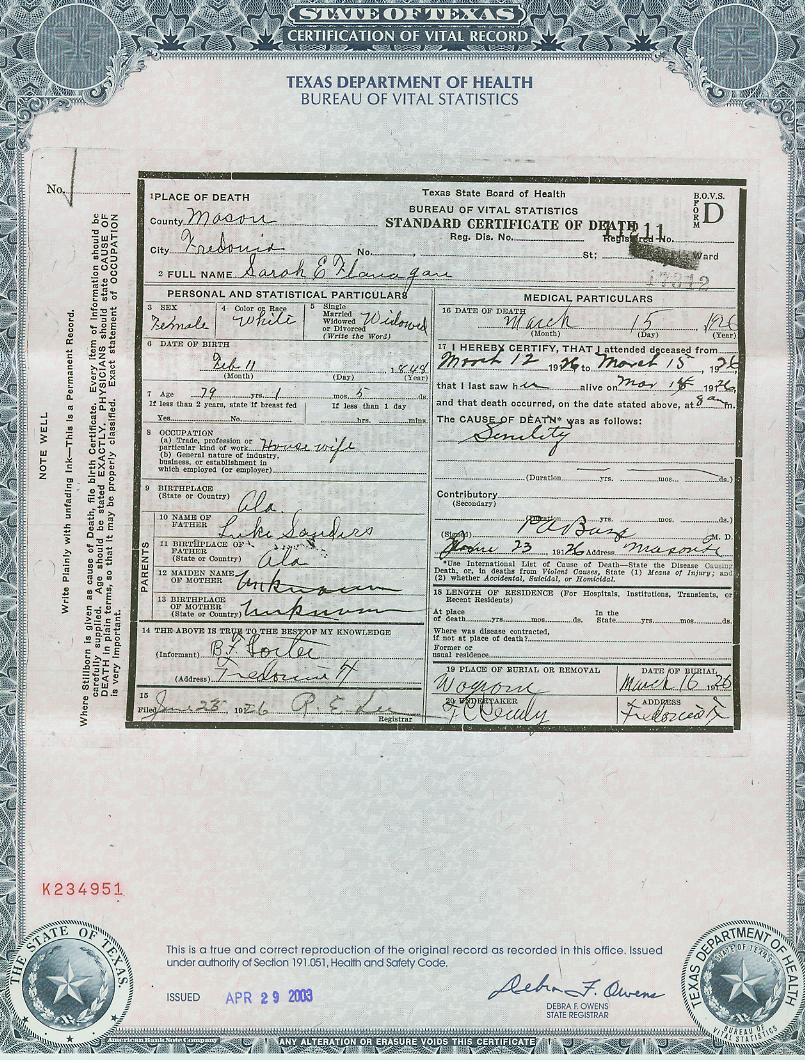 STATE OF TEXAS
CERTIFICATION OF VITAL RECORD
TEXAS DEPARTMENT OF HEALTH
BUREAU OF VITAL STATISTICS
No.
NOTE WELL
Write Plainly with unfading Ink—This is a Permanent Record.
Where Stillborn is given as cause of Death, file birth Certificate. Every item of Information should be
carefully supplied. Age should be stated EXACTLY. PHYSICIANS should state CAUSE OF
DEATH in plain terms, so that it may be properly classified. Exact statement of OCCUPATION
is very important.
1 PLACE OF DEATH
County Mason
City Fredonia No.
Texas State Board of Health
BUREAU OF VITAL STATISTICS
STANDARD CERTIFICATE OF DEATH
Reg. Dis. No. Registered No.
St; Ward
B.O.V.S.
FORM D
2 FULL NAME Sarah E Flanagan
PERSONAL AND STATISTICAL PARTICULARS
3 SEX Female
4 Color or Race White
5 Single Married Widowed or Divorced (Write the Word) Widowed
6 DATE OF BIRTH
Feb 11 1848
(Month) (Day) (Year)
7 Age 79 yrs. 1 mos. 5 ds.
If less than 2 years, state if breast fed If less than 1 day
Yes No. hrs. mins.
8 OCCUPATION
(a) Trade, profession or
particular kind of work House wife
(b) General nature of industry,
business, or establishment in
which employed (or employer)
9 BIRTHPLACE
(State or Country) Ala.
PARENTS
10 NAME OF
FATHER Luke Sanders
11 BIRTHPLACE OF
FATHER
(State or Country) Ala
12 MAIDEN NAME
OF MOTHER Unknown
13 BIRTHPLACE
OF MOTHER
(State or Country) Unknown
14 THE ABOVE IS TRUE TO THE BEST OF MY KNOWLEDGE
(Informant) B.F.
(Address)
15
Filed June 23 1926 R. E. Lee
Registrar
MEDICAL PARTICULARS
16 DATE OF DEATH
March 15 1926
(Month) (Day) (Year)
17 I HEREBY CERTIFY, THAT I attended deceased from
March 12 1926 to March 15, 1926
that I last saw her alive on Mar 1926,
and that death occurred, on the date stated above, at 8 am.
The CAUSE OF DEATH* was as follows:
Senility
(Duration yrs. mos. ds.)
Contributory
(Secondary)
(Duration yrs. mos. ds.)
(Signed) M. D.
June 23 1926 Address
*Use International List of Cause of Death—State the Disease Causing
Death, or, in deaths from Violent Causes, State (1) Means of Injury; and
(2) whether Accidental, Suicidal, or Homicidal.
18 LENGTH OF RESIDENCE (For Hospitals, Institutions, Transients, or
Recent Residents)
At place of death yrs. mos. ds. In the State yrs. mos. ds.
Where was disease contracted,
if not at place of death?
Former or
usual residence
19 PLACE OF BURIAL OR REMOVAL
DATE OF BURIAL
March 16 1926
20 UNDERTAKER
ADDRESS
K234951
This is a true and correct reproduction of the original record as recorded in this office. Issued
under authority of Section 191.051, Health and Safety Code.
ISSUED APR 29 2003
Debra F. Owens
DEBRA F. OWENS
STATE REGISTRAR
THE STATE OF TEXAS
TEXAS DEPARTMENT OF HEALTH
STATE OF TEXAS
BUREAU OF VITAL STATISTICS
American Bank Note Company
ANY ALTERATION OR ERASURE VOIDS THIS CERTIFICATE